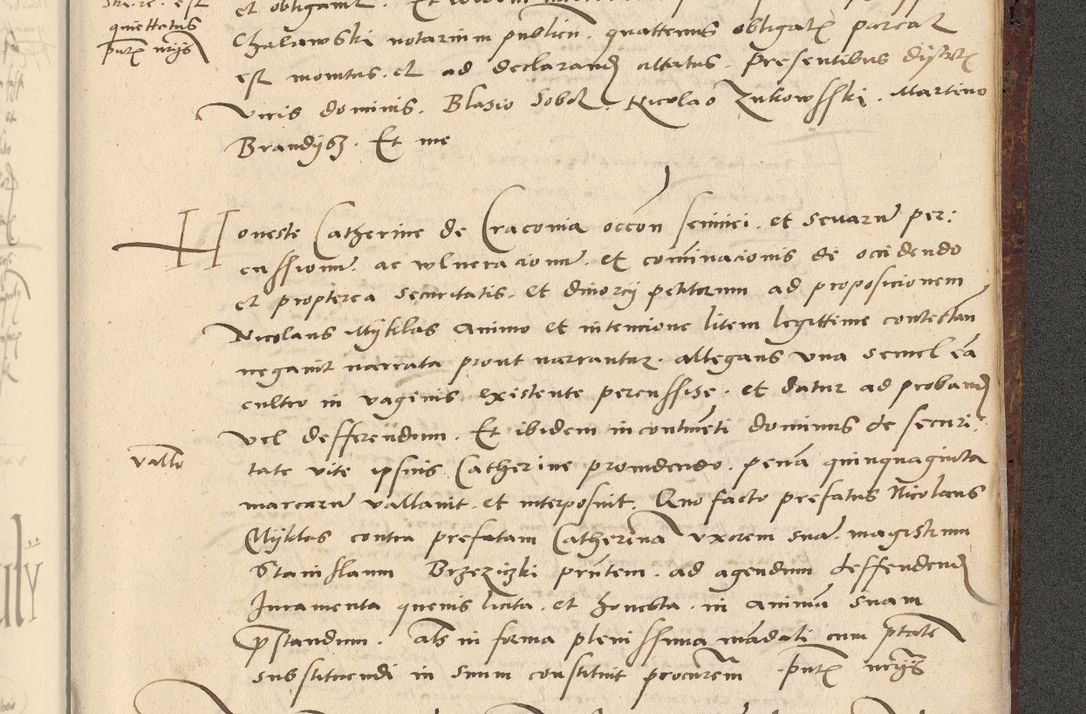 quiettatus
et obligavit. Et
Chalawski notarium publicu. quattenus obligat parcat
est monitus. et ad declarand attatus. presentibus discret
viris dominis. Blasio Sobol. Nicolao Zukowsski. Martino
Brandijsz. Et me
Honeste Catherine de Craconia occon seviciei. et sevaru per:
cussionu. ac vulneracionu. et cominacionis de occidendo
et propterea securitatis. et divorcij petitorum ad proposicionem
Nicolaus Myklas animo et intencione litem legittime contestan
negavit narrata prout narrantur. allegans una semel ea
cultro in vaginis existente percussisse. et datur ad proband
vel defferendum. Et ibidem incontineti dominus de securi
vallo
tate vite ipsius Catherine providendo. pena quinquaginta
marcaru vallavit. et interposuit. Quo facto prefatus Nicolaus
Myklas contra prefatam Catherina uxorem sua. magistrum
Stanislaum Brzeziczki pntem. ad agendum deffendend
Iuramenta quevis licita. et honesta. in anima suam
prestandum. als in forma plenissima madati cum ptate
substituendi in suum constituit procurem. pntt nrijs